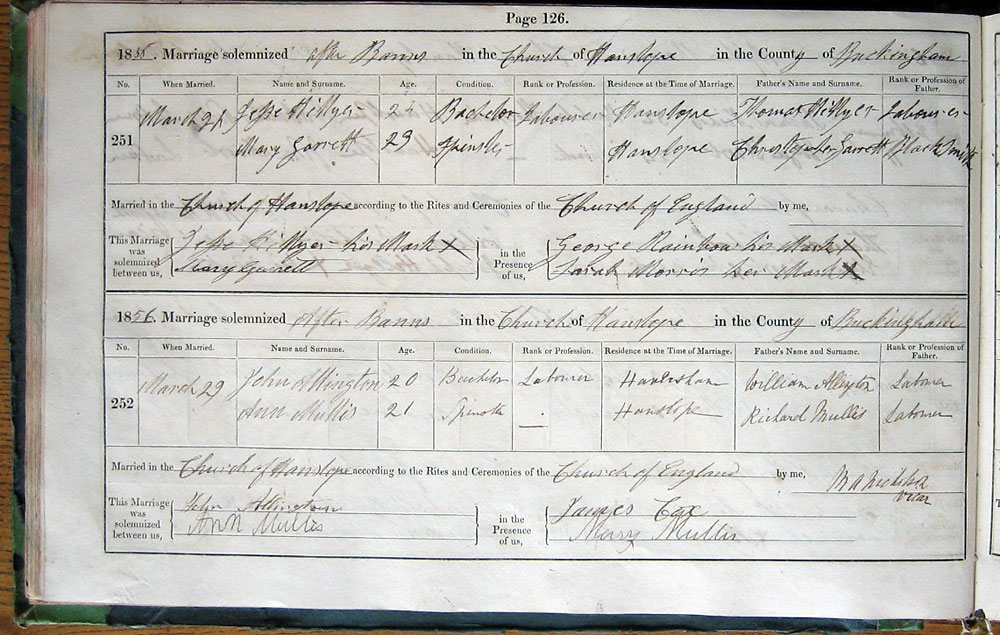 Page 126.
1855. Marriage solemnized after Banns in the Church of Hanslope in the County of Buckingham
No. When Married. Name and Surname. Age. Condition. Rank or Profession. Residence at the Time of Marriage. Father's Name and Surname. Rank or Profession of Father.
251 March 24 Jesse Hillyer 24 Bachelor Labourer Hanslope Thomas Hillyer Labourer
Mary Garrett 23 Spinster Hanslope Christopher Garrett Black Smith
Married in the Church of Hanslope according to the Rites and Ceremonies of the Church of England by me,
This Marriage was solemnized between us, Jesse Hillyer his Mark X in the Presence of us, George Rainbow his Mark X
Mary Garrett Sarah Morris her Mark X
1856. Marriage solemnized After Banns in the Church of Hanslope in the County of Buckingham
No. When Married. Name and Surname. Age. Condition. Rank or Profession. Residence at the Time of Marriage. Father's Name and Surname. Rank or Profession of Father.
252 March 29 John Allington 20 Bachelor Labourer Haversham William Allington Labourer
Ann Mullis 21 Spinster Hanslope Richard Mullis Labourer
Married in the Church of Hanslope according to the Rites and Ceremonies of the Church of England by me,
Vicar
This Marriage was solemnized between us, John Allington in the Presence of us, James Cox
Ann Mullis Mary Mullis